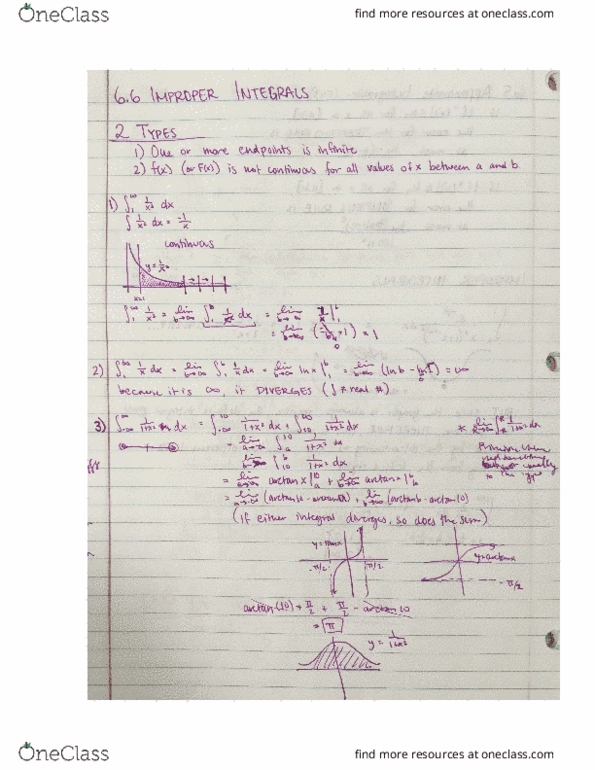 OneClass
find more resources at oneclass.com
6.6 IMPROPER INTEGRALS
2 TYPES
1) One or more endpoints is infinite
2) f(x) (or F(x)) is not continuous for all values of x between a and b.
1) ∫₁^∞ 1/x² dx
∫ 1/x² dx = -1/x
continuous
y = 1/x²
x=1
∫₁^∞ 1/x² = lim b→∞ ∫₁^b 1/x² dx = lim b→∞ -1/x |₁^b
= lim b→∞ (-1/b + 1) = 1
0
2) ∫₁^∞ 1/x dx = lim b→∞ ∫₁^b 1/x dx = lim b→∞ ln x |₁^b = lim b→∞ (ln b - ln 1) = ∞
0
because it is ∞, it DIVERGES (∫ ≠ real #)
3) ∫₋∞^∞ 1/1+x² dx = ∫₋∞^10 1/1+x² dx + ∫₁₀^∞ 1/1+x² dx
= lim a→-∞ ∫ₐ^10 1/1+x² dx
lim b→∞ ∫₁₀^b 1/1+x² dx
= lim a→-∞ arctan x |ₐ^10 + lim b→∞ arctan x |₁₀^b
= lim a→-∞ (arctan 10 - arctan a) + lim b→∞ (arctan b - arctan 10)
(if either integral diverges, so does the sum)
y = tan x
-π/2
π/2
y = arctan x
-π/2
arctan(10) + π/2 + π/2 - arctan 10
= π
y = 1/1+x²
OneClass
find more resources at oneclass.com